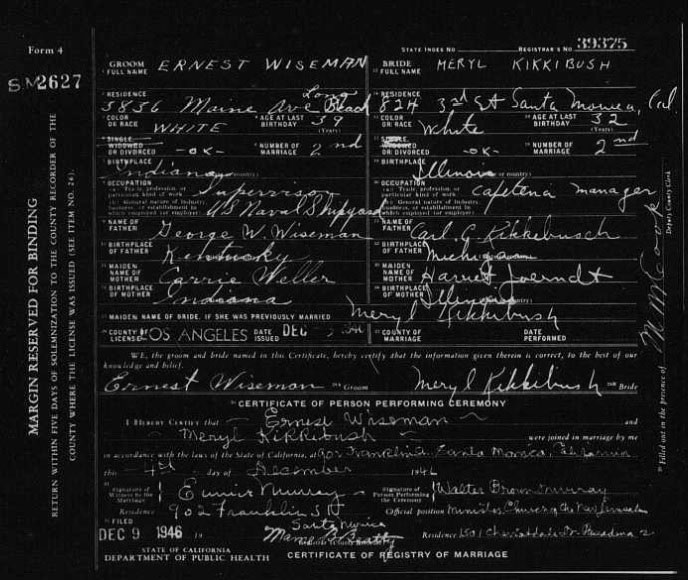 Form 4
STATE INDEX No. REGISTRAR'S No. 39375
S M2627
GROOM FULL NAME ERNEST WISEMAN
BRIDE FULL NAME MERYL KIKKIBUSH
RESIDENCE 3836 Maine Ave Long Beach
RESIDENCE 824 3rd St Santa Monica, Cal
COLOR OR RACE WHITE AGE AT LAST BIRTHDAY 39 (Years)
COLOR OR RACE White AGE AT LAST BIRTHDAY 32 (Years)
SINGLE WIDOWED OR DIVORCED -OK- NUMBER OF MARRIAGE 2nd
SINGLE WIDOWED OR DIVORCED -OK- NUMBER OF MARRIAGE 2nd
BIRTHPLACE Indiana
BIRTHPLACE Illinois
OCCUPATION Supervisor
US Naval Shipyard
OCCUPATION Cafeteria manager
NAME OF FATHER George W. Wiseman
NAME OF FATHER Carl G. Kikkebusch
BIRTHPLACE OF FATHER Kentucky
BIRTHPLACE OF FATHER Michigan
MAIDEN NAME OF MOTHER Carrie Weller
MAIDEN NAME OF MOTHER Harriet
BIRTHPLACE OF MOTHER Indiana
BIRTHPLACE OF MOTHER Illinois
MAIDEN NAME OF BRIDE, IF SHE WAS PREVIOUSLY MARRIED Meryl Kikkibush
COUNTY OF LICENSE LOS ANGELES DATE ISSUED DEC
COUNTY OF MARRIAGE DATE PERFORMED
WE, the groom and bride named in this Certificate, hereby certify that the information given therein is correct, to the best of our
knowledge and belief.
Ernest Wiseman Groom Meryl Kikkibush Bride
CERTIFICATE OF PERSON PERFORMING CEREMONY
I HEREBY CERTIFY that Ernest Wiseman and
Meryl Kikkibush were joined in marriage by me
in accordance with the laws of the State of California, at 902 Franklin St, Santa Monica, California
this 4th day of December 1946
Signature of Witness to the Marriage Eunice Murray
Signature of Person Performing the Ceremony Walter Brown Murray
Residence 902 Franklin St
Santa Monica
Official position Minister, Church of the New Jerusalem
FILED DEC 9 1946
Residence
STATE OF CALIFORNIA
DEPARTMENT OF PUBLIC HEALTH CERTIFICATE OF REGISTRY OF MARRIAGE
MARGIN RESERVED FOR BINDING
RETURN WITHIN FIVE DAYS OF SOLEMNIZATION TO THE COUNTY RECORDER OF THE
COUNTY WHERE THE LICENSE WAS ISSUED (SEE ITEM NO. 24).
Filled out in the presence of
Deputy County Clerk